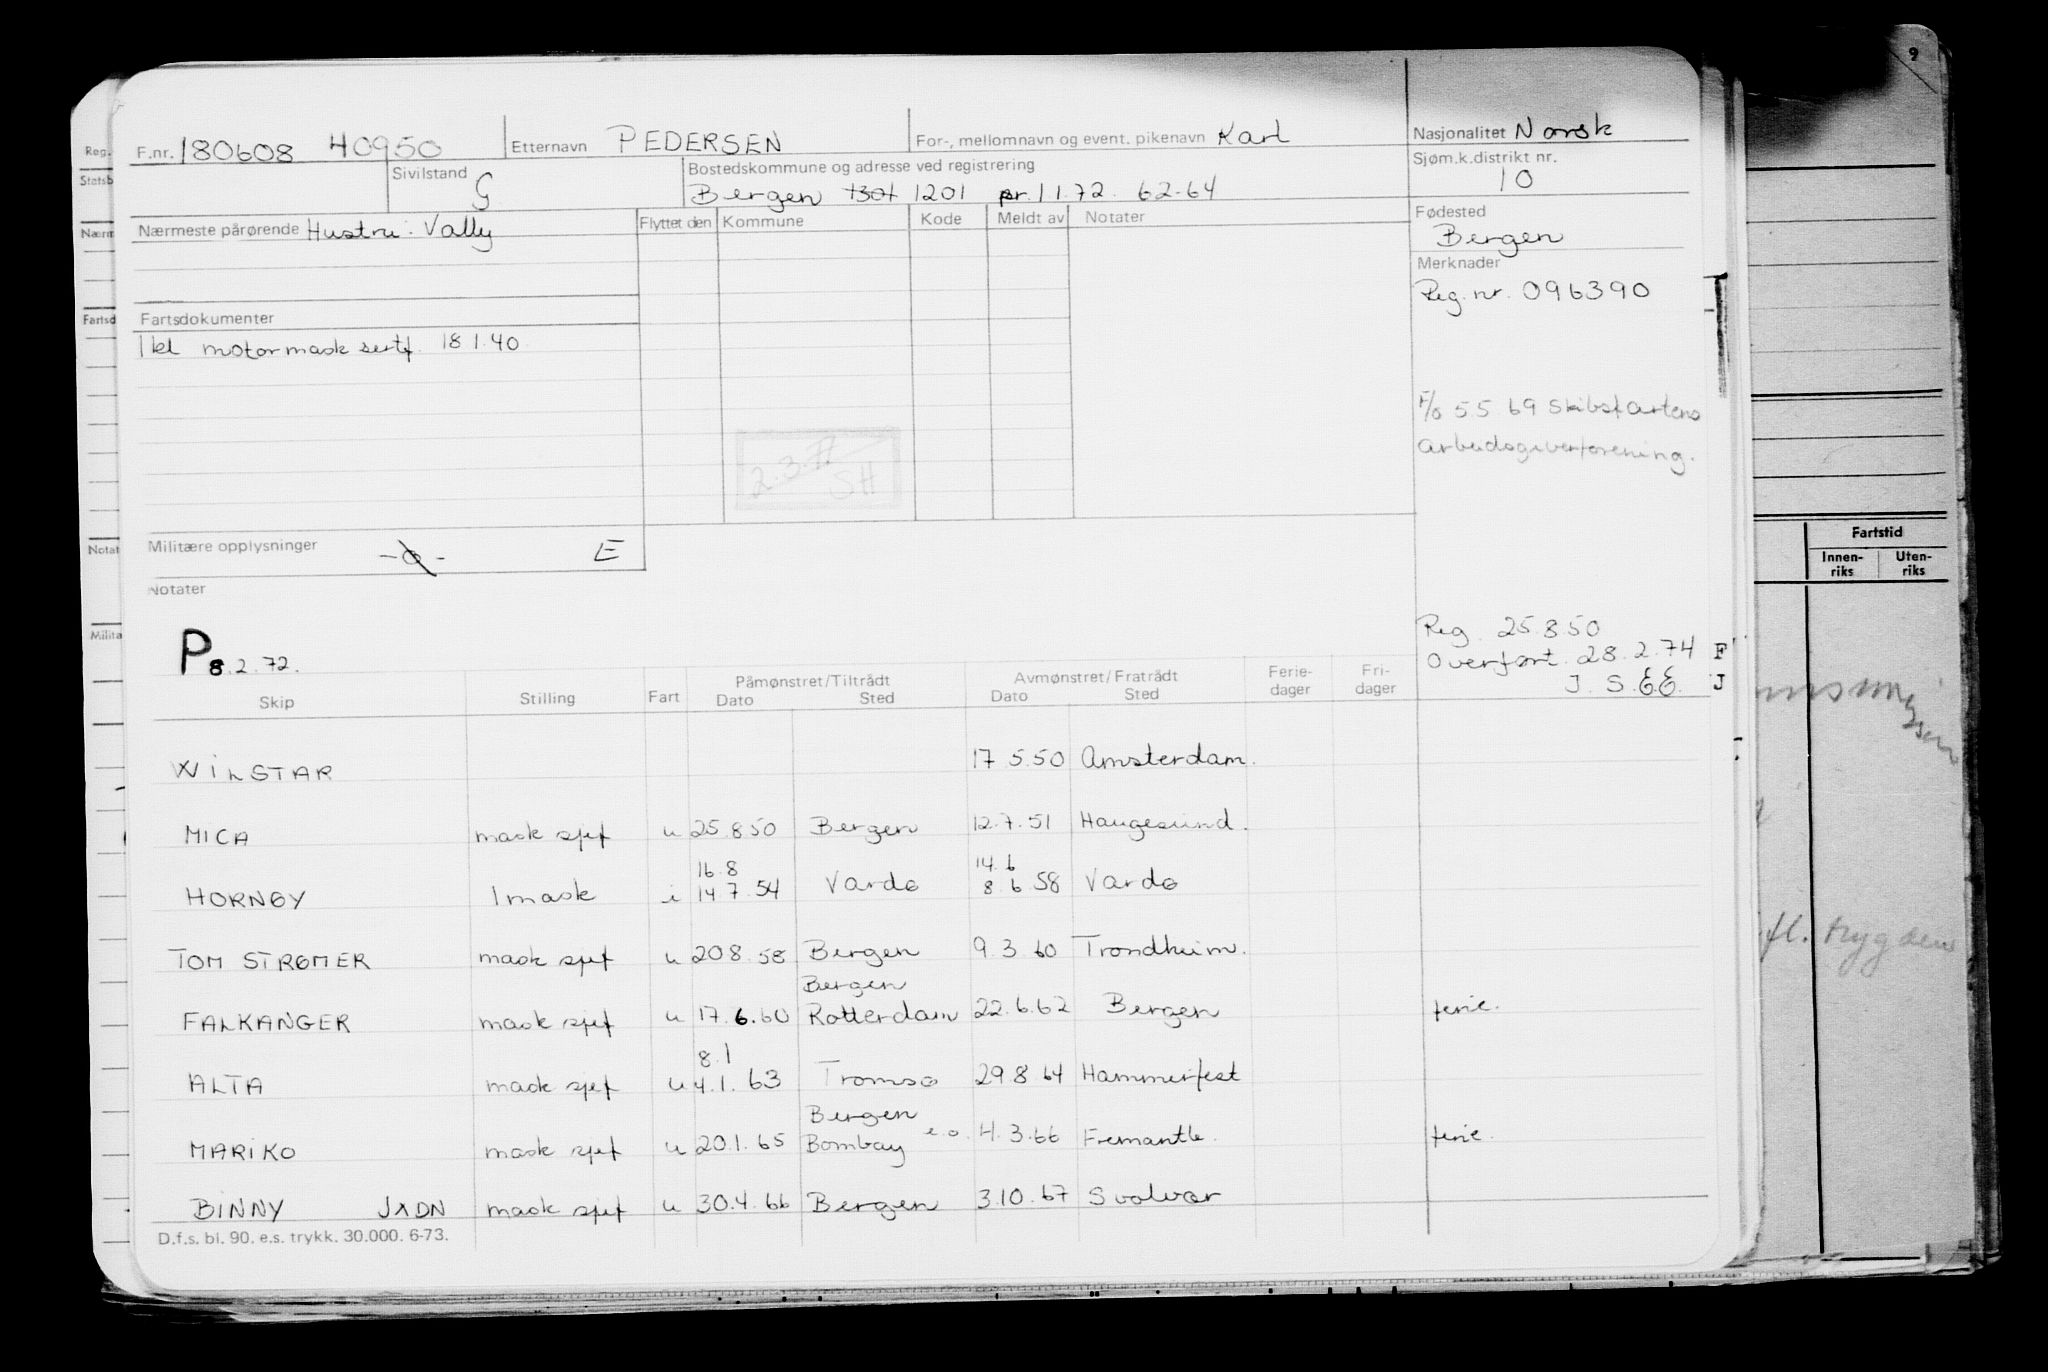 F.nr. 180608 40950 Etternavn PEDERSEN For-, mellomnavn og event. pikenavn Karl Nasjonalitet Norsk
Sivilstand G Bostedskommune og adresse ved registrering Sjøm.k.distrikt nr.
Bergen 1301 1201 pr. 1 1.72. 62-64 10
Nærmeste pårørende Hustru: Vally Flyttet den Kommune Kode Meldt av Notater Fødested
Bergen
Merknader
Reg. nr. 096390
Fartsdokumenter
1 kl motormask sertf. 18 1.40
F/o 5.5 69 Skibsfartens
arbeidsgiverforening.
2.3.77
SH
Militære opplysninger -o- E
Notater
P 8.2.72.
Reg. 25.8.50
Overført. 28.2.74
J. S.E.E.
Skip Stilling Fart Påmønstret/Tiltrådt Dato Sted Avmønstret/Fratrådt Dato Sted Ferie-dager Fri-dager
WILSTAR 17 5.50 Amsterdam.
MICA mask sjef u 25 8 50 Bergen 12.7.51 Haugesund.
16.8 14.6
HORNØY 1 mask i 14.7.54 Vardø 8.6.58 Vardø
TOM STRØMER mask sjef u 20 8.58 Bergen 9.3.60 Trondheim.
Bergen
FALKANGER mask sjef u 17.6.60 Rotterdam 22.6.62 Bergen ferie.
8.1
ALTA mask sjef u 4.1.63 Tromsø 29.8 64 Hammerfest
Bergen
MARIKO mask sjef u 20.1.65 Bombay e.o. 4.3.66 Fremantle. ferie.
BINNY JXDN mask sjef u 30.4.66 Bergen 3.10.67 Svolvær
D.f.s. bl. 90. e.s. trykk. 30.000. 6-73.
Reg.
Statsb
Nærm
Fartsd
Notat
Milita
9
Fartstid
Innen-riks Uten-riks
F
J
fl.